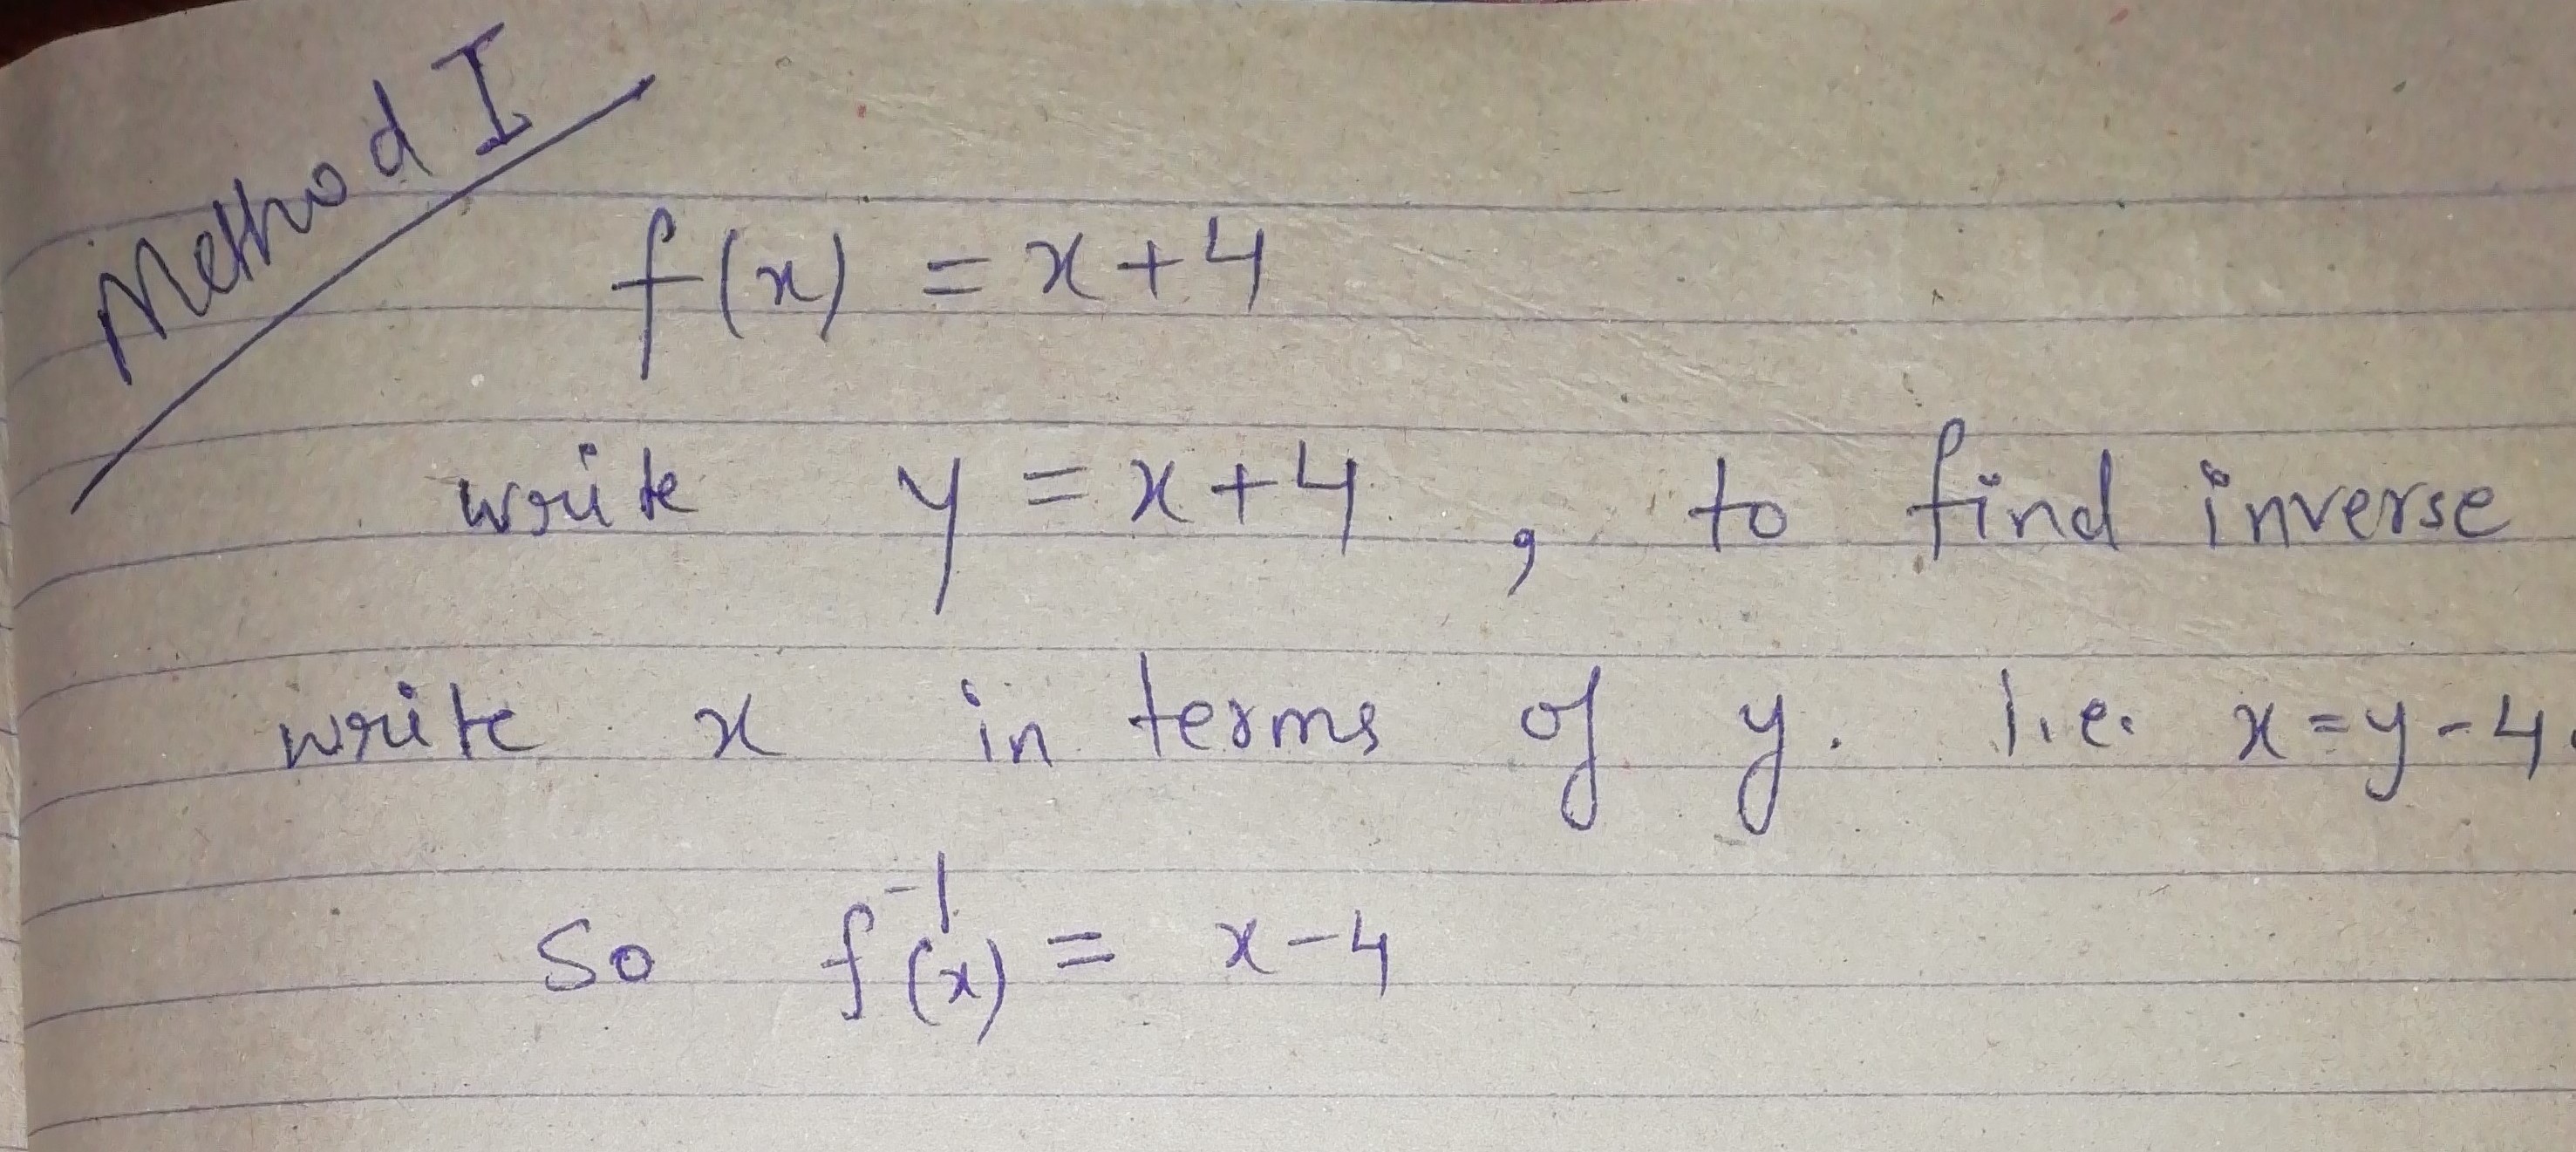 Method I
f(x) = x+4
write y = x+4 , to find inverse
write x in terms of y. I.e. x=y-4.
So f⁻¹(x) = x-4